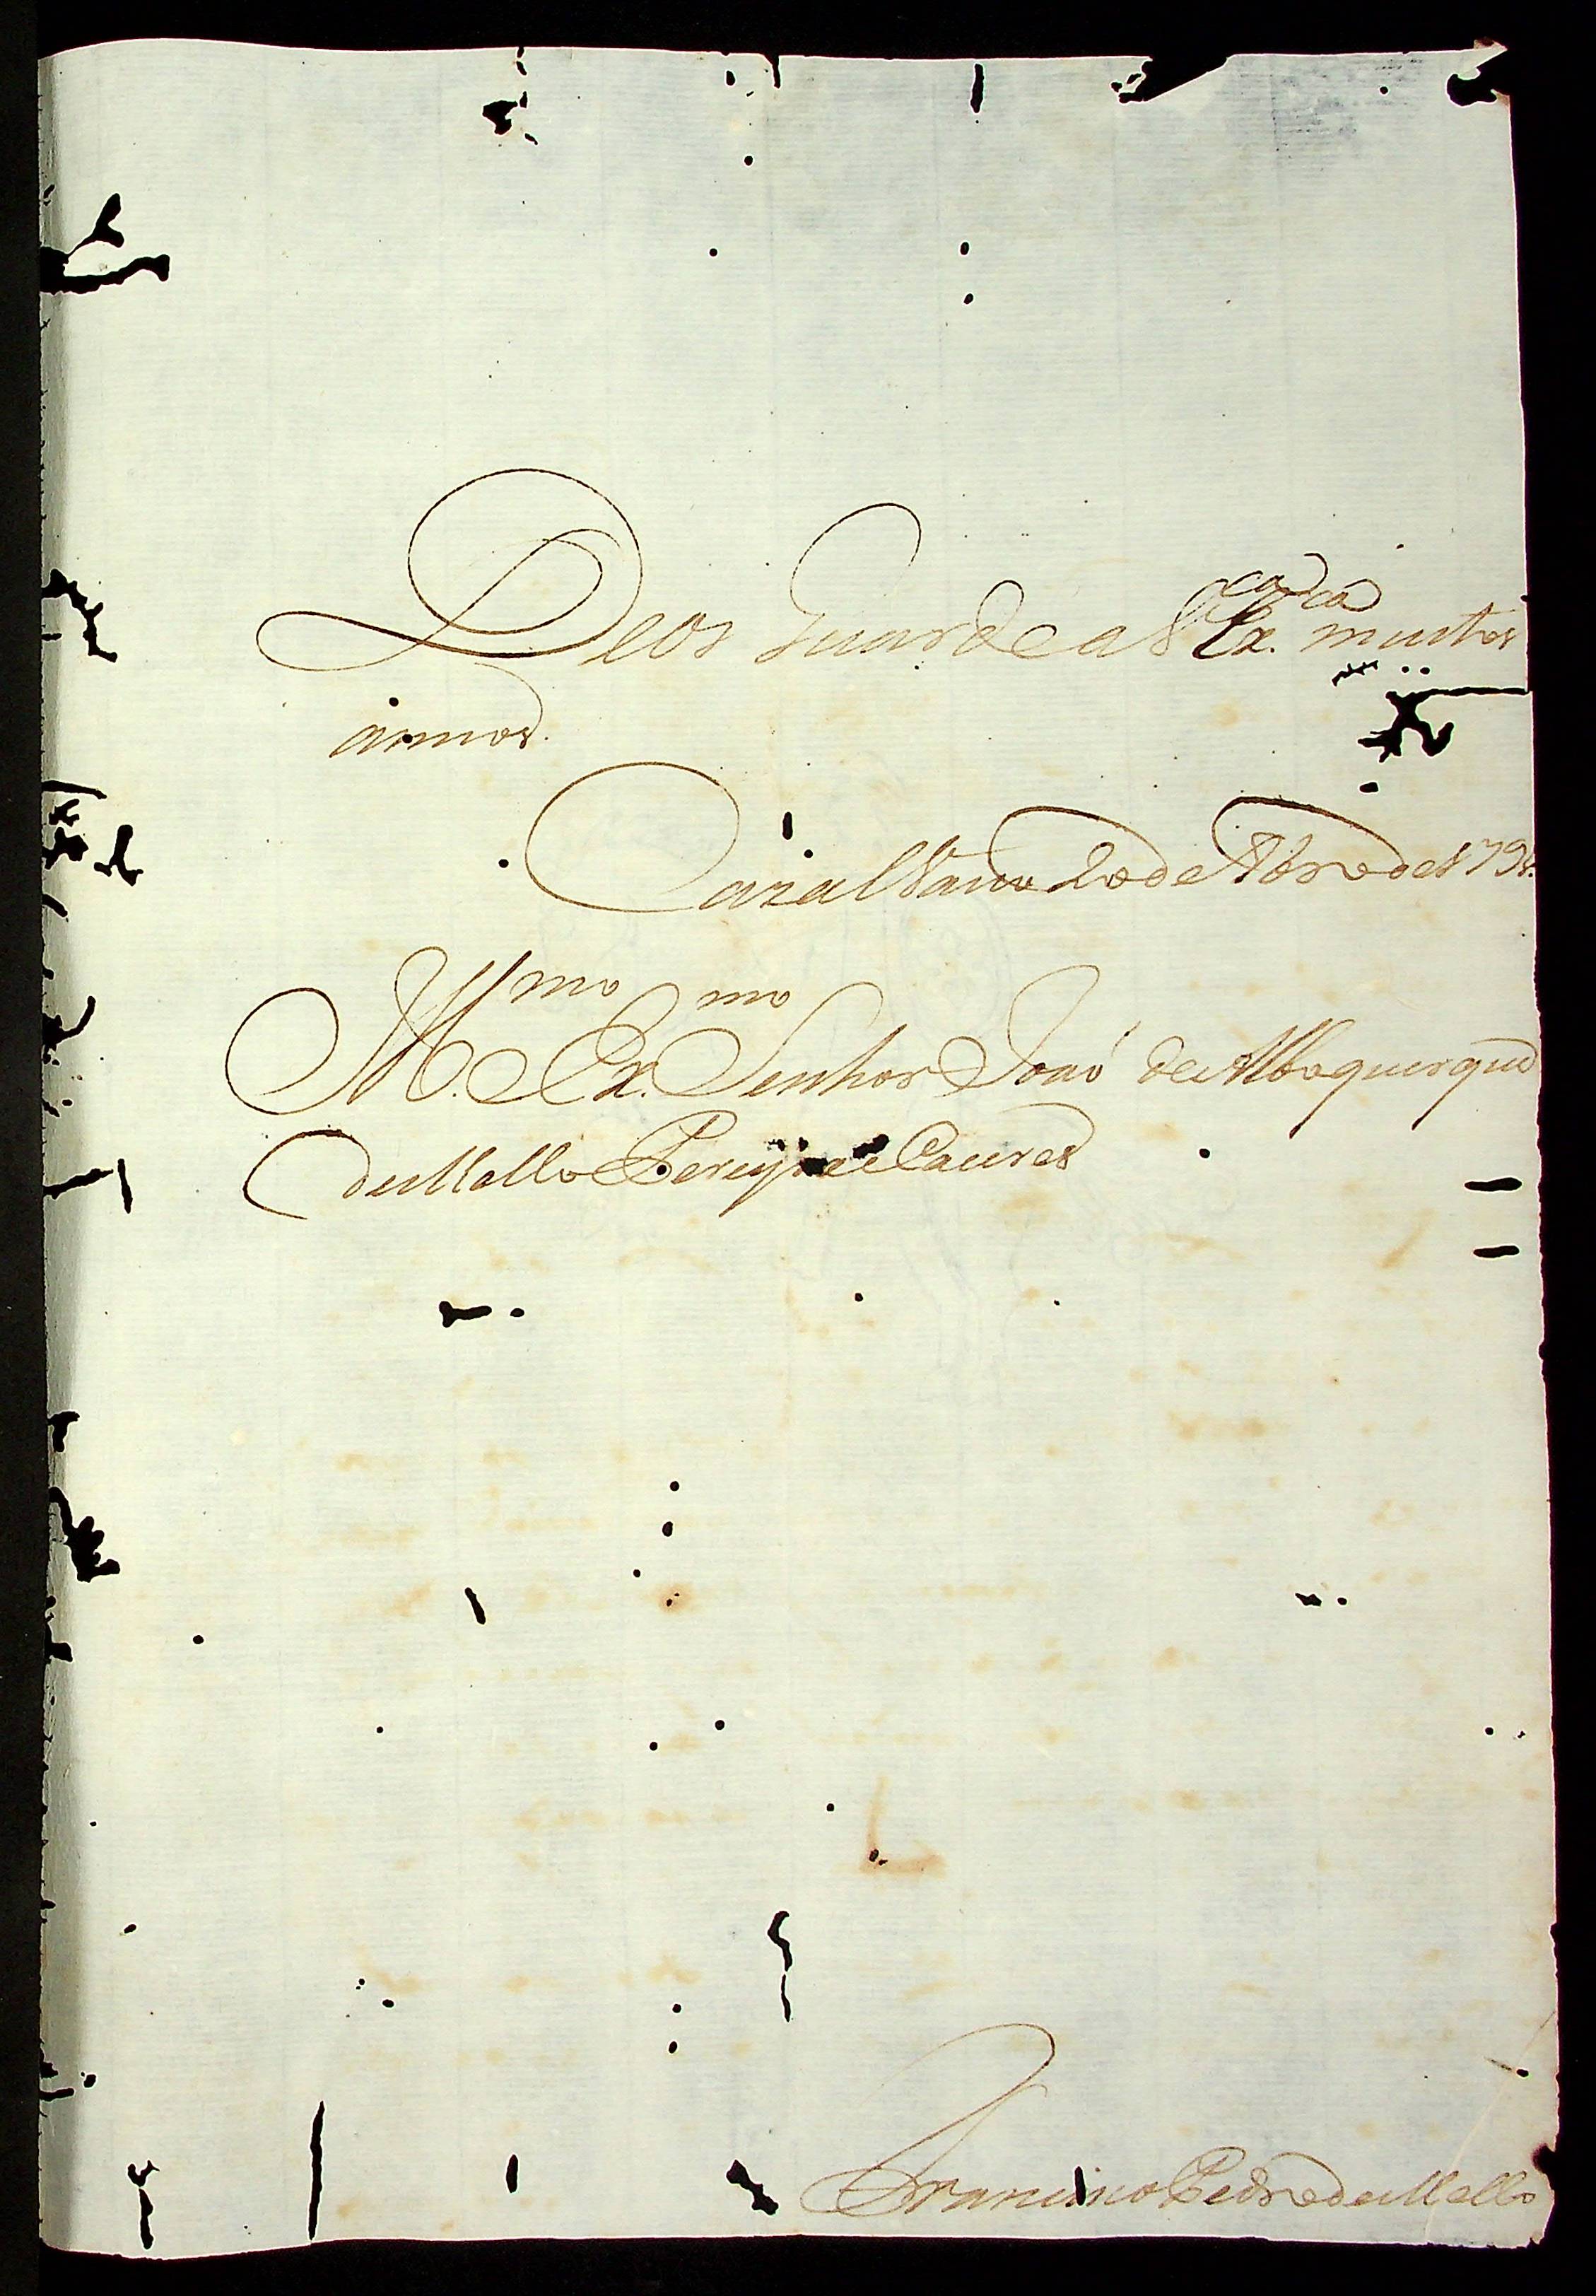 Deos Guarde a V Ex.ca muitos
annos.
Cazal Vasco 20 de 8bro de 1794.
Ill.mo Ex.mo Senhor Joaó de Albuquerque
de Mello Pereyra e Caceres
Francisco Pedro de Mello